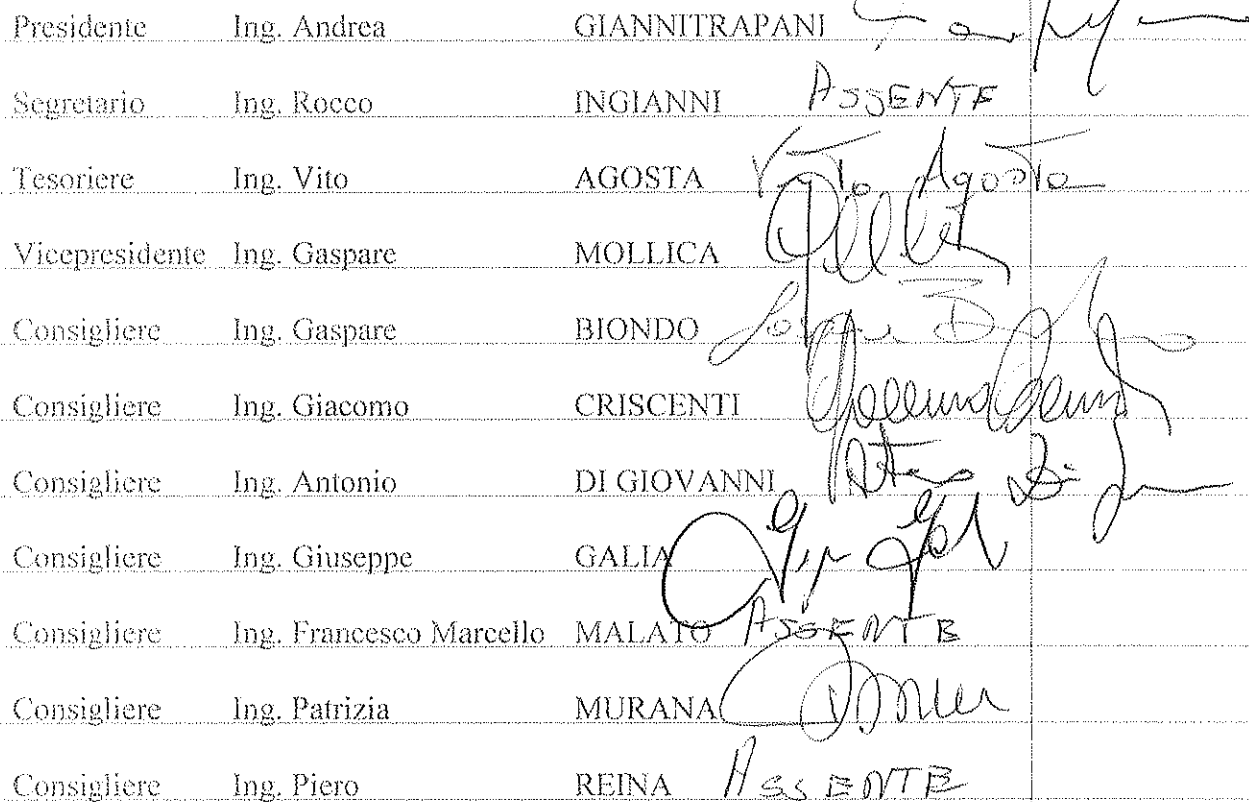 Presidente Ing. Andrea GIANNITRAPANI
Segretario Ing. Rocco INGIANNI ASSENTE
Tesoriere Ing. Vito AGOSTA Vito Agosta
Vicepresidente Ing. Gaspare MOLLICA
Consigliere Ing. Gaspare BIONDO
Consigliere Ing. Giacomo CRISCENTI
Consigliere Ing. Antonio DI GIOVANNI
Consigliere Ing. Giuseppe GALIA
Consigliere Ing. Francesco Marcello MALATO ASSENTE
Consigliere Ing. Patrizia MURANA
Consigliere Ing. Piero REINA ASSENTE